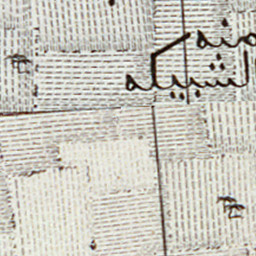 منه
الشبيكه